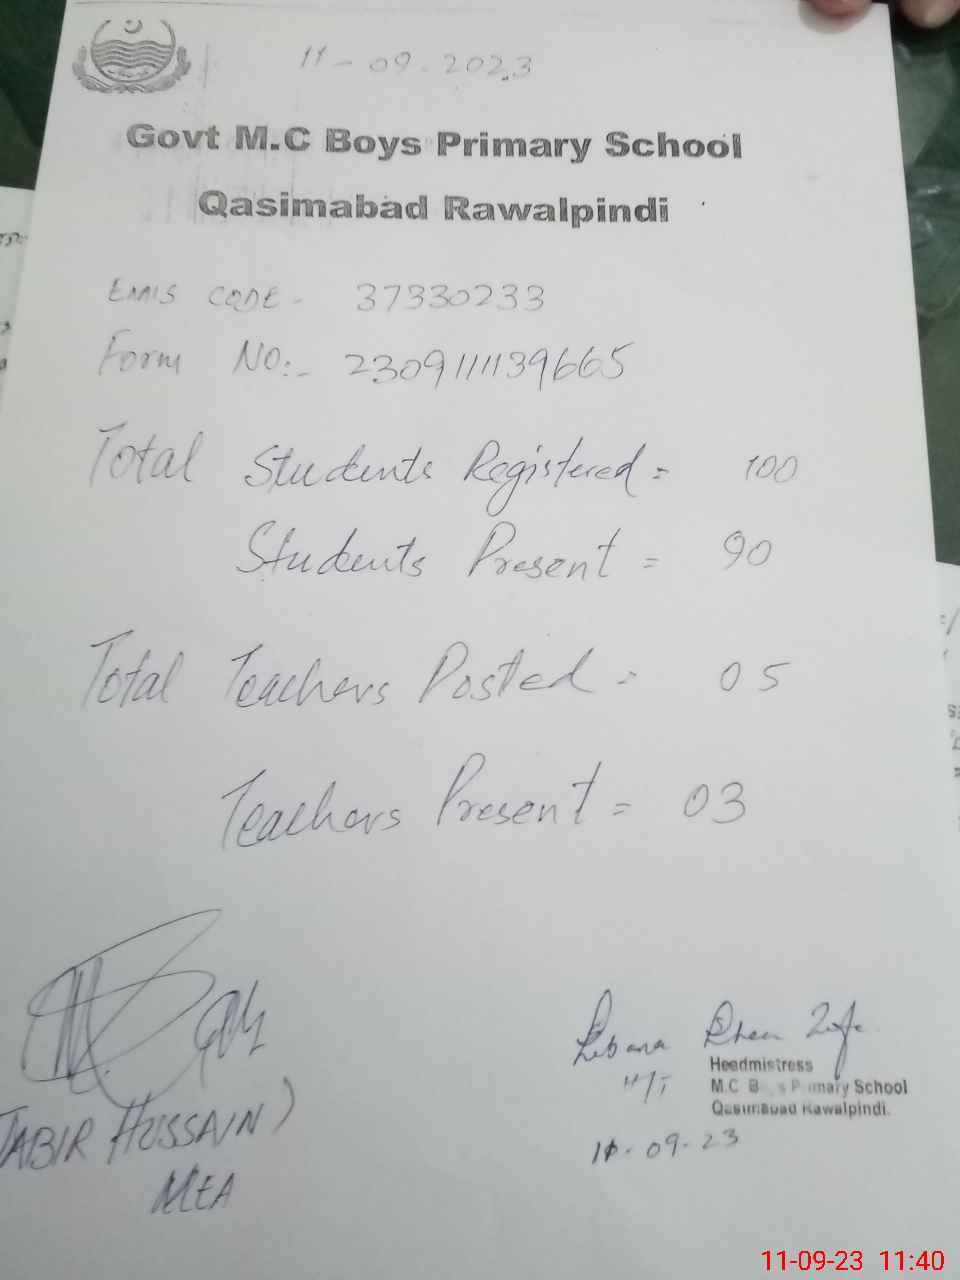 11-09-2023
Govt M.C Boys Primary School
Qasimabad Rawalpindi
EMIS CODE- 37330233
Form NO:- 2309111139665
Total Students Registered = 100
Students Present = 90
Total Teachers Posted = 05
Teachers Present = 03
JABIR HUSSAIN)
MEA
Headmistress
M.C Boys Primary School
Qasimabad Rawalpindi.
H/T
11-09-23
11-09-23 11:40